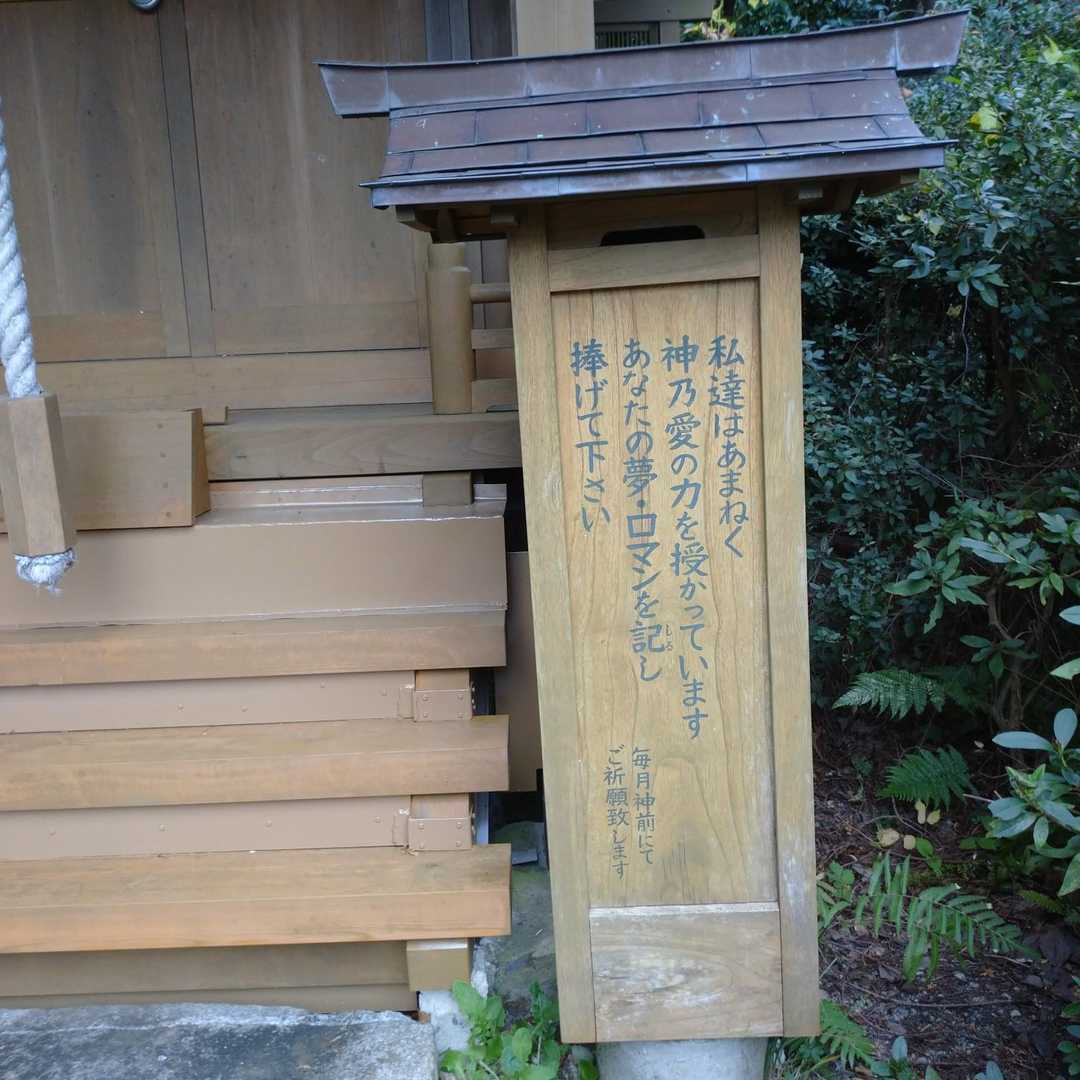 私達はあまねく
神乃愛の力を授かっています
あなたの夢・ロマンを記し
しる
捧げて下さい
毎月神前にて
ご祈願致します